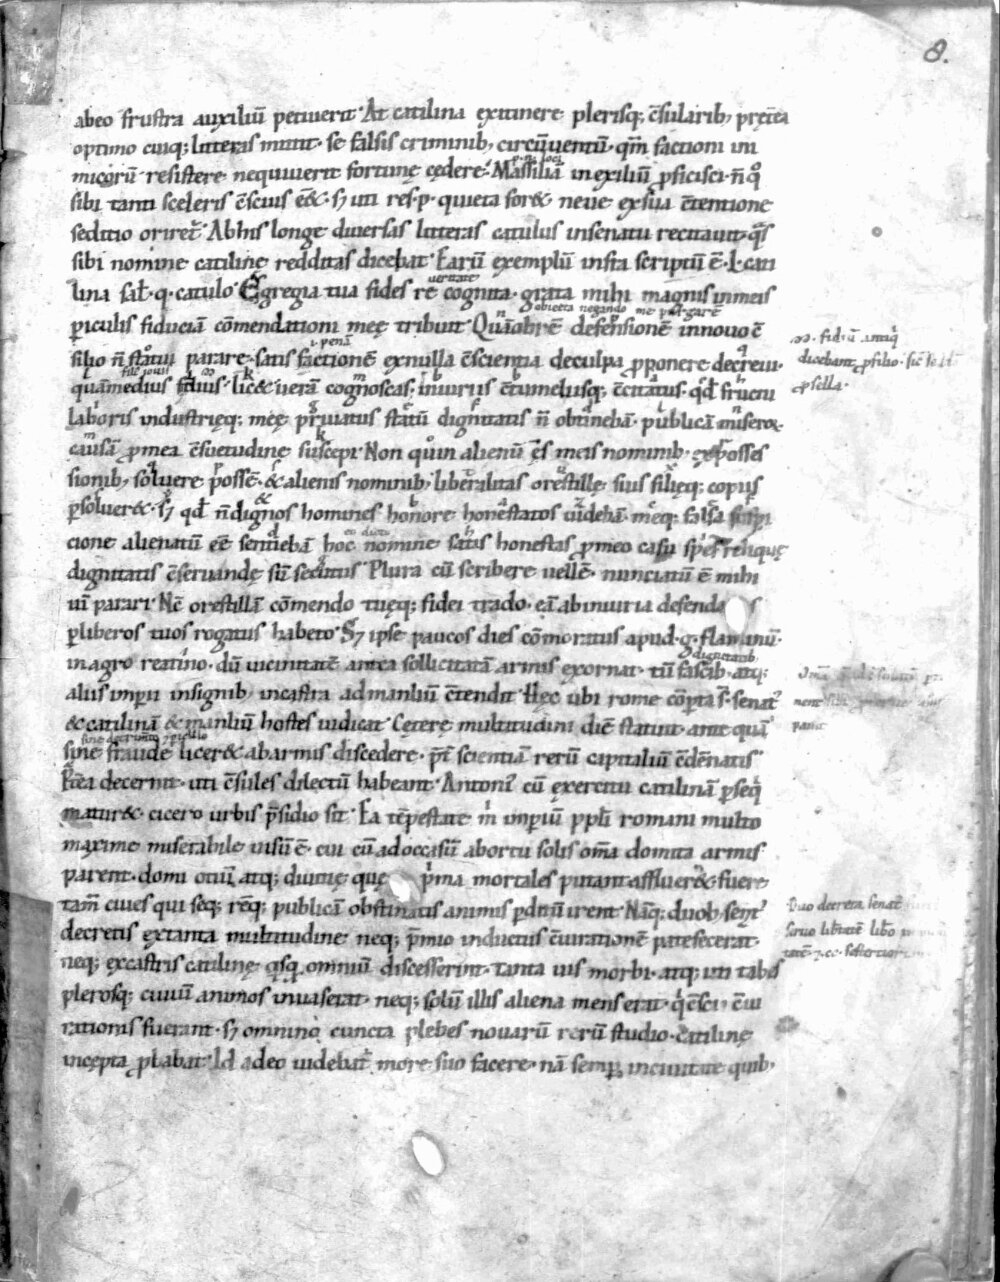 8.
abeo frustra auxiliū petiuerit· At catilina extinere plerisq; c̄sularib; pręt̄ea
optimo cuiq; litteras mittit· se falsis criminib; circūuentū· qm̄ factioni ini
micorū resistere nequiuerit fortunę cędere· Massiliā inexiliū ꝓficisci· n̄ qͦ
sibi tanti sceleris c̄scius eēt· sꝫ uti res·p· quieta for& neue exsua c̄tentione
seditio oriret᷑· Abhis longe diuersas litteras catulus insenatu recitauit· qᷓs
sibi nomine catilinę redditas dicebat· Earū exemplū infra scriptū ē· L· cati
lina sał· q· catulo· Egregia tua fides re cognita· grata mihi magnis inmeis
ueritate
ꝑiculis fiduciā cōmendationi meę tribuit· Quāobrē defensionē innouo c̄
obiecta negando me purgarē
silio n̄ statui parare· satis factionē exnulla c̄scientia deculpa ꝓponere decreui·
quāmedius fidius· lic& uerā cognoscas· iniuriis c̄tumeliisq; c̄citatus· qd̄ fructu
laboris industrięq; meę priuatus statū dignitatis n̄ obtinebā· publicā miseroꝝ
causā ꝓmea c̄suetudine suscepi· Non quin alienū ęs meis nominib; exposses
sionib; soluere possē· & alienis nominib; liberalitas orestillę suis filięq; copiis
ꝑsoluer&· sꝫ qd̄ n̄dignos homines honore honestatos uidebā· meq; falsa suspi
cione alienatū eē sentiebā hoc nomine satis honestas ꝓmeo casu spes reliquę
dignitatis c̄seruandę sū secutus· Plura cū scribere uellē· nunciatū ē mihi
uī parari· Nc̄ orestillā cōmendo tuęq; fidei trado· eā abiniuria defenda s
ꝑliberos tuos rogatus habeto· Sꝫ ipse paucos dies cōmoratus apud· g· flaminiū·
inagro reatino· dū uicinitatē antea sollicitatā armis exornat· cū fascib; atq;
dignitatib;
aliis imperii insignib; incastra admanliū c̄tendit· Hęc ubi rome cōperta s̄· senat᷒
& catilinā & manliū hostes iudicat· Cęterę multitudini diē statuit· ante quā
sine fraude licer& abarmis discedere· pr̄ scientiā rerū capitaliū c̄dēnatis·
Pr̄ea decernit· uti c̄sules dilectū habeant· Antoni᷒ cū exercitu catilinā ꝑseqͥ
matur&· cicero urbis p̄sidio sit· Ea tēpestate m̄ imperiū ppłi romani multo
maxime miserabile uisū ē· cui cū adoccasū abortu solis om̄a domita armis
parent· domi otiū atq; diuitię quę pͥma mortales putant affluer& fuere
tam̄ ciues qui seq; rēq; publicā obstinatis animis ꝑditū irent· Nāq; duob; senat᷒
decretis extanta multitudine neq; p̄mio inductus c̄iurationē patefecerat·
neq; excastris catilinę qͥsq; omniū discesserint· tanta uis morbi· atq; uti tabes
plerosq; ciuiū animos inuaserat· neq; solū illis aliena mens erat· qͥ c̄scii c̄iu
rationis fuerant· sꝫ omnino cuncta plebes nouarū rerū studio· catilinę
incępta ꝓbabat· Id adeo uidebat᷑ more suo facere· nā semꝑ inciuitate quib;
fidiū antiqͥ
dicebant ꝓ filio·
Duo decreta senat᷒
seruo libtatē libo
tatē ⁊ cc· sestertiorū